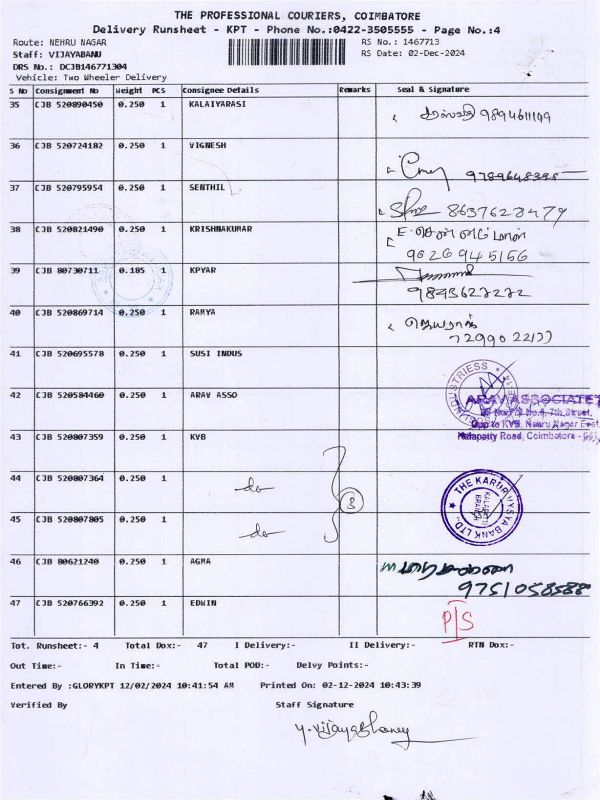 THE PROFESSIONAL COURIERS, COIMBATORE
Delivery Runsheet - KPT - Phone No.:0422-3505555 - Page No.:4
Route: NEHRU NAGAR RS No.: 1467713
Staff: VIJAYABANU RS Date: 02-Dec-2024
DRS No.: DCJB146771304
Vehicle: Two Wheeler Delivery
S No Consignment No Weight PCS Consignee Details Remarks Seal & Signature
35 CJB 520890450 0.250 1 KALAIYARASI
9894611149
36 CJB 520724182 0.250 1 VIGNESH
9789648395
37 CJB 520795954 0.250 1 SENTHIL
8637623479
38 CJB 520821490 0.250 1 KRISHNAKUMAR
9026945156
39 CJB 80730711 0.185 1 KPYAR
9843627272
40 CJB 520869714 0.250 1 RAMYA
ஜெயராஜ்
7299022177
41 CJB 520695578 0.250 1 SUSI INDUS
INDUSTRIESS
42 CJB 520584460 0.250 1 ARAV ASSO
ARAV ASSOCIATE
Opp to KVB, Nehru Nagar East
Kalapatty Road, Coimbatore -
43 CJB 520807359 0.250 1 KVB
44 CJB 520807364 0.250 1 do 3
THE KARUR VYSYA BANK LTD.
KALAPATTI
BRANCH
45 CJB 520807805 0.250 1 do
46 CJB 80621240 0.250 1 AGMA
9751058588
47 CJB 520766392 0.250 1 EDWIN
P|S
Tot. Runsheet:- 4 Total Dox:- 47 I Delivery:- II Delivery:- RTN Dox:-
Out Time:- In Time:- Total POD:- Delvy Points:-
Entered By :GLORYKPT 12/02/2024 10:41:54 AM Printed On: 02-12-2024 10:43:39
Verified By Staff Signature